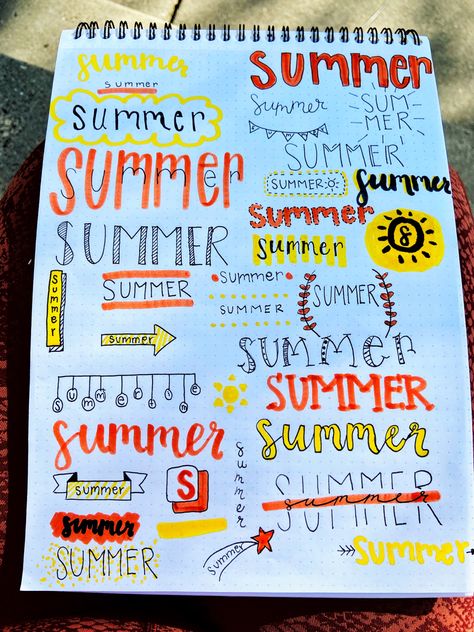 summer
summer
summer
summer
summer
SUM
MER
SUMMER
summer
summer
SUMMER
summer
SUMMER
SUMMER
summer
S
summer
SUMMER
summer
SUMMER
SUMMER
summer
SUMMER
summertime
SUMMER
summer
summer
summer
summer
S
SUMMER
summer
summer
SUMMER
summer
summer